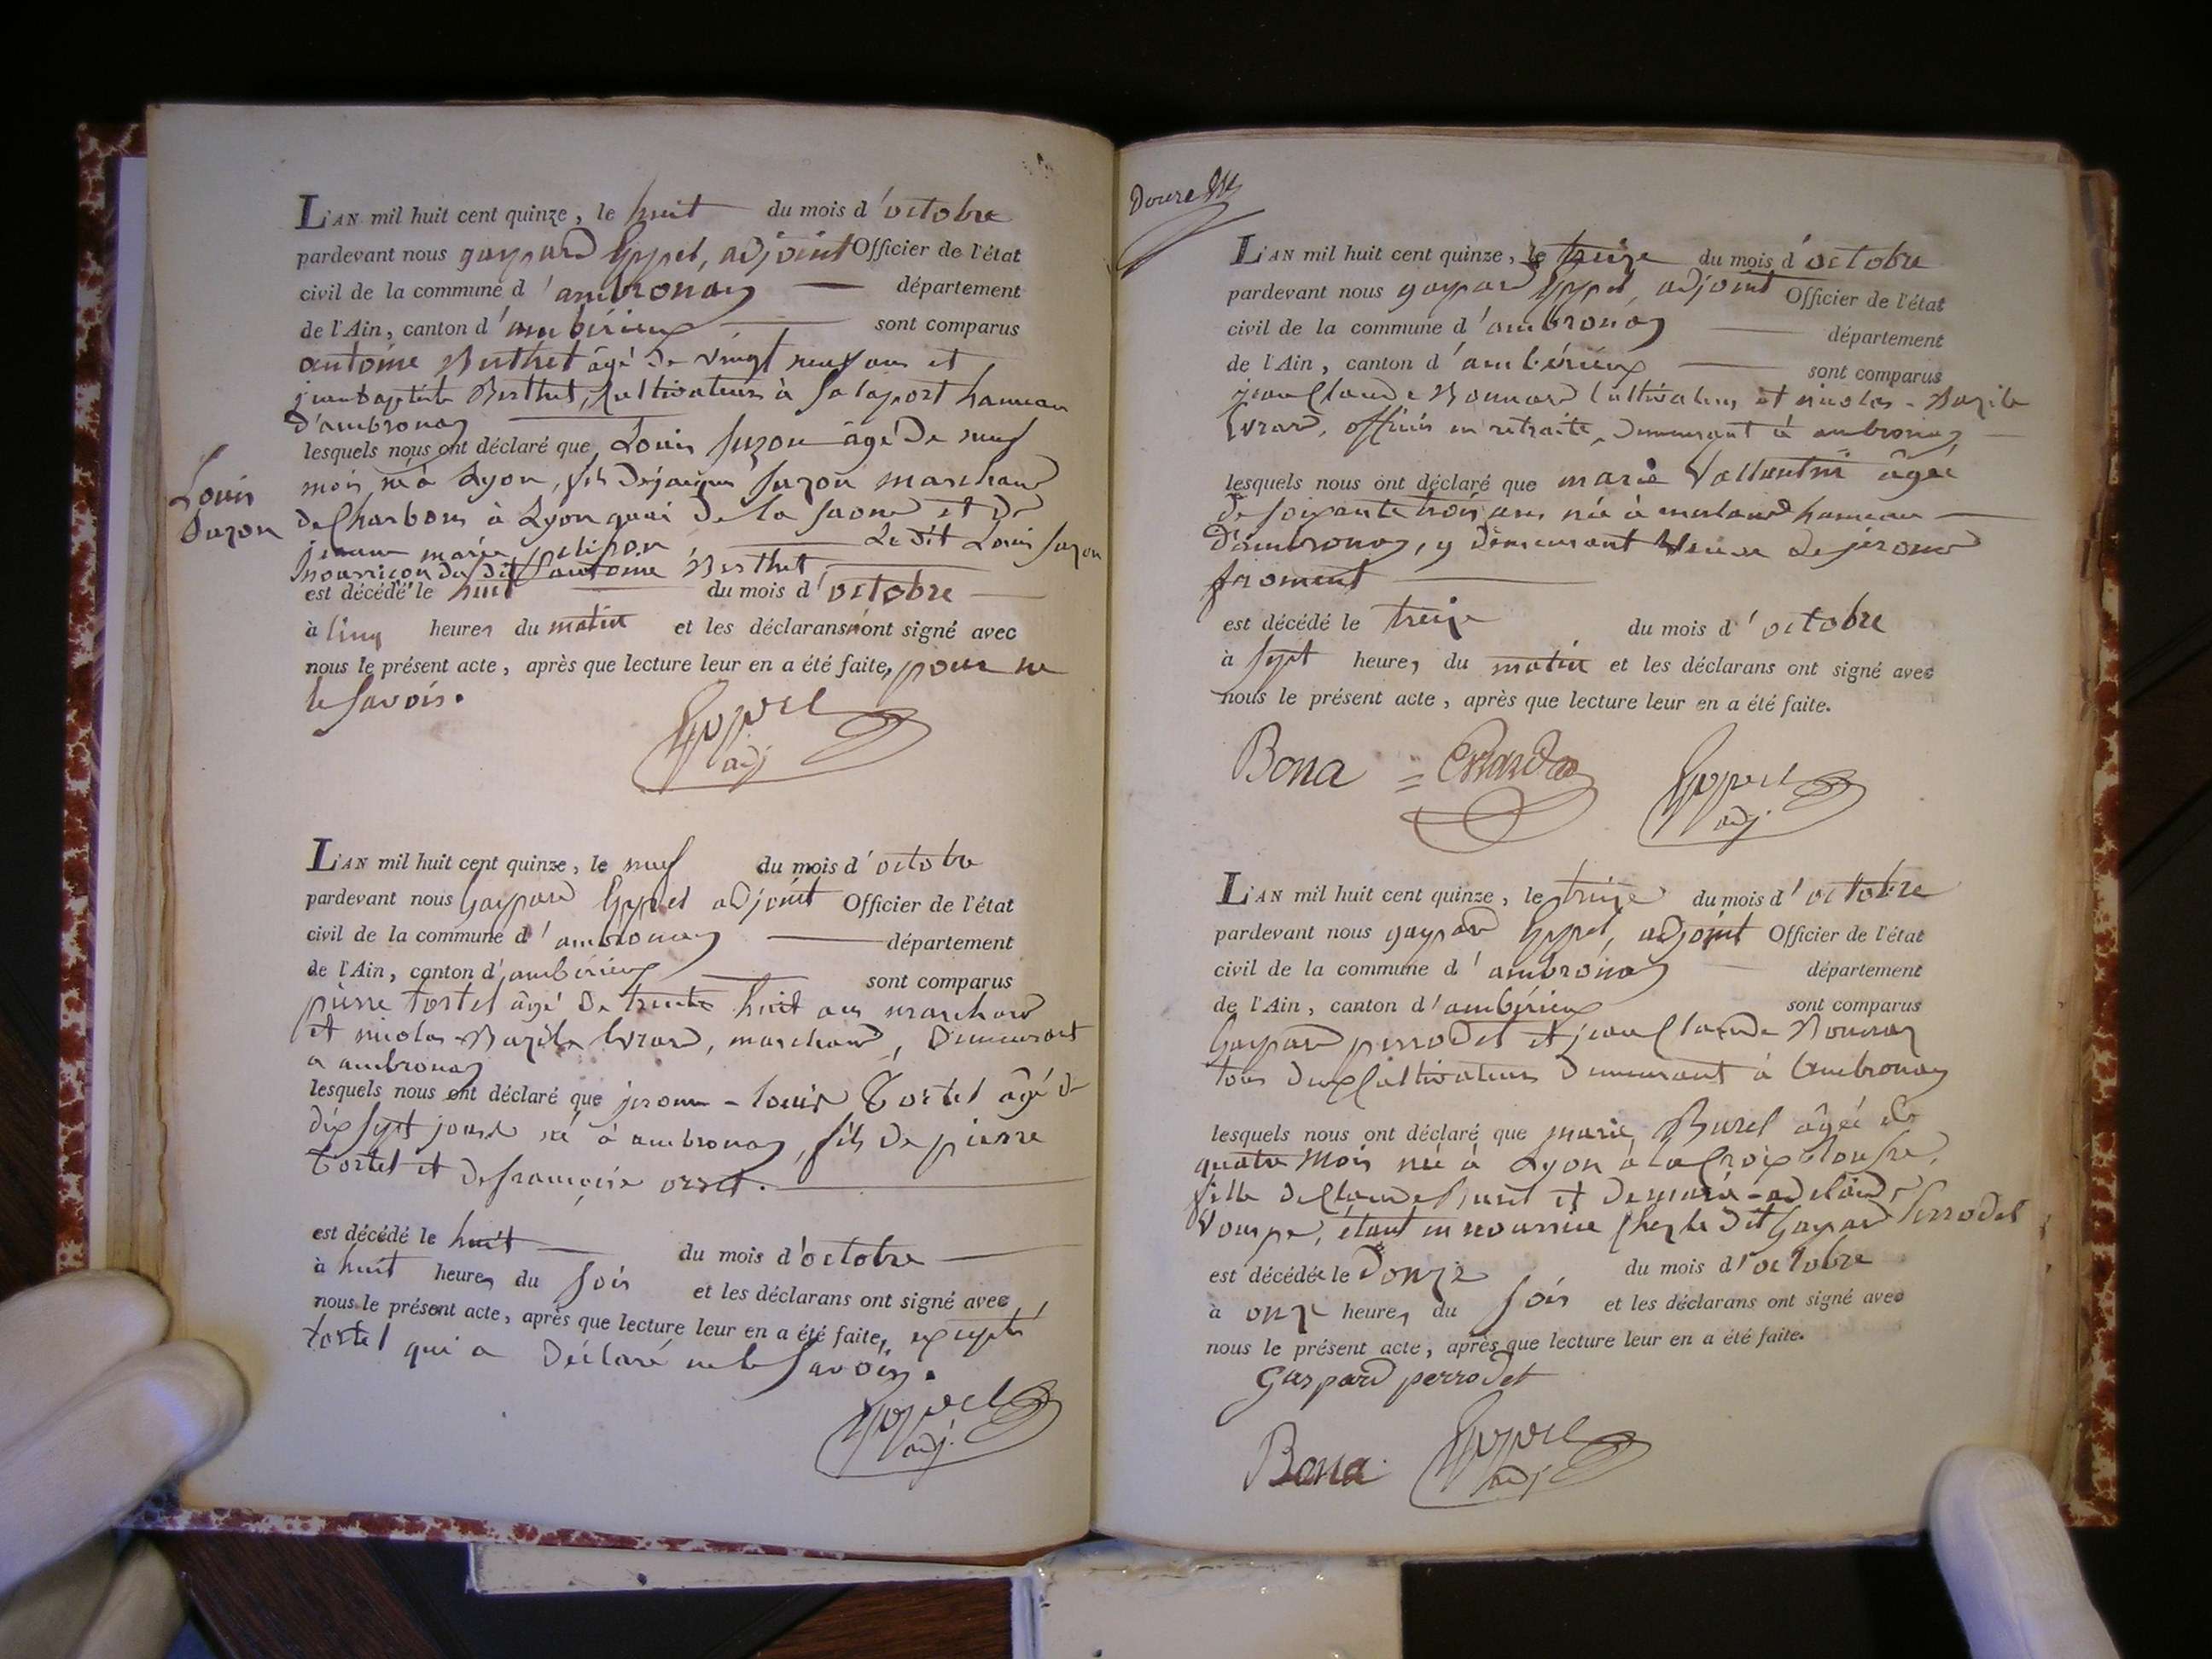 L'AN mil huit cent quinze, le huit du mois d'octobre
pardevant nous gaspard Eppel, adjoint Officier de l'état
civil de la commune d'ambronay département
de l'Ain, canton d'ambérieux sont comparus
antoine Berthet âgé de vingt neuf ans et
jean baptiste Berthet, Cultivateurs à Salaport hameau
d'ambronay
lesquels nous ont déclaré que Louis Suzon âgé De neuf
mois né à Lyon, fils De jacques Suzon marchand
De Charbons à Lyon quai De la Saone et De
jeanne marie Le dit Louis Suzon
nourriçon du dit antoine Berthet
est décédé le huit du mois d'octobre
à Cinq heures du matin et les déclarans n'ont signé avec
nous le présent acte, après que lecture leur en a été faite, pour ne
le savoir.
Eppel
adj
Louis
Suzon
L'AN mil huit cent quinze, le neuf du mois d'octobre
pardevant nous Gaspard Eppel adjoint Officier de l'état
civil de la commune d'ambronay département
de l'Ain, canton d'ambérieux sont comparus
pierre tortel âgé De trente huit ans marchand
et nicolas Bazile Evrard, marchand, Demeurant
a ambronay
lesquels nous ont déclaré que jerome - louis Tortel âgé de
dix sept jours né à ambronay, fils De pierre
Tortel et de françoise orset.
est décédé le huit du mois d'octobre
à huit heures du soir et les déclarans ont signé avec
nous le présent acte, après que lecture leur en a été faite, excepté
tortel qui a Déclaré ne le savoir.
Eppel
adj.
L'AN mil huit cent quinze, le treize du mois d'octobre
pardevant nous gaspard Eppel, adjoint Officier de l'état
civil de la commune d'ambronay département
de l'Ain, canton d'ambérieux sont comparus
jean Claude Bonnard Cultivateur et nicolas - Bazile
Evrard, officier en retraite, Demeurant à ambronay
lesquels nous ont déclaré que marie Vallentin âgée
De soixante trois ans née à merland hameau
D'ambronay, y demeurant Veuve De jerome
froment
est décédé le treize du mois d'octobre
à sept heures du matin et les déclarans ont signé avec
nous le présent acte, après que lecture leur en a été faite.
Bona = Evrard Eppel
adj.
L'AN mil huit cent quinze, le treize du mois d'octobre
pardevant nous gaspard Eppel, adjoint Officier de l'état
civil de la commune d'ambronay département
de l'Ain, canton d'ambérieux sont comparus
Gaspard perrodet et jean Claude Bonnaz
tous deux Cultivateurs Demeurant à Ambronay
lesquels nous ont déclaré que marie Burel âgée de
quatre Mois née à Lyon à la Croix Rousse,
fille De Claude Burel et De marie - adelaide
étant en nourrice Chez le Dit Gaspard Perrodet
est décédée le Douze du mois d'octobre
à onze heures du soir et les déclarans ont signé avec
nous le présent acte, après que lecture leur en a été faite.
Gaspard perrodet
Bona Eppel
adj